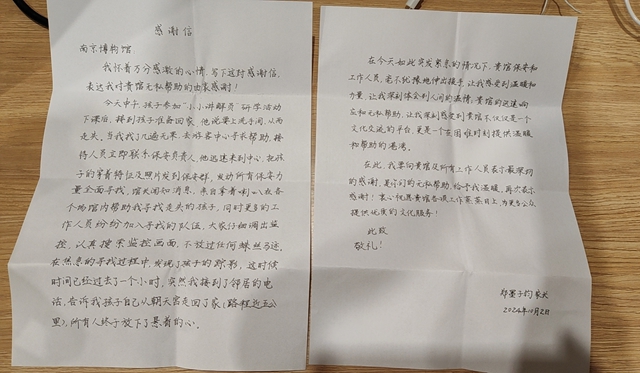 感谢信
南京博物馆
我怀着万分感激的心情,写下这封感谢信,
表达我对贵馆无私帮助的由衷感谢!
今天中午,孩子参加“小小讲解员”研学活动
下课后,接到孩子准备回家,他说要上洗手间,从而
走失。当我找了几遍无果,去游客中心寻求帮助,接
待人员立即联系保安负责人,他迅速来到中心,把孩
子的穿着特征及照片发到保安群,发动所有保安力
量全面寻找,馆长闻知消息,亲自拿着喇叭在各
个场馆内帮助我寻找走失的孩子,同时更多的工
作人员纷纷加入寻找的队伍,大家仔细调出监
控,认真搜索监控画面,不放过任何蛛丝马迹。
在焦急的寻找过程中,发现了孩子的踪影,这时候
时间已经过去了一个小时,突然我接到了邻居的电
话,告诉我孩子自己从朝天宫走回了家(路程近五公
里),所有人终于放下了悬着的心。
在今天如此突发紧急的情况下,贵馆保安和
工作人员,毫不犹豫地伸出援手,让我感受到温暖和
力量,让我深刻体会到人间的温情,贵馆的迅速响
应和无私帮助,让我深刻感受到贵馆不仅仅是一个
文化交流的平台,更是一个在困难时刻提供温暖
和帮助的港湾。
在此,我要向贵馆及所有工作人员表示最深切
的感谢,是你们的无私帮助,给予我温暖,再次表示
感谢!衷心祝愿贵馆各项工作蒸蒸日上,为更多公众
提供优质的文化服务!
此致
敬礼!
郑墨子均家长
2024年10月2日